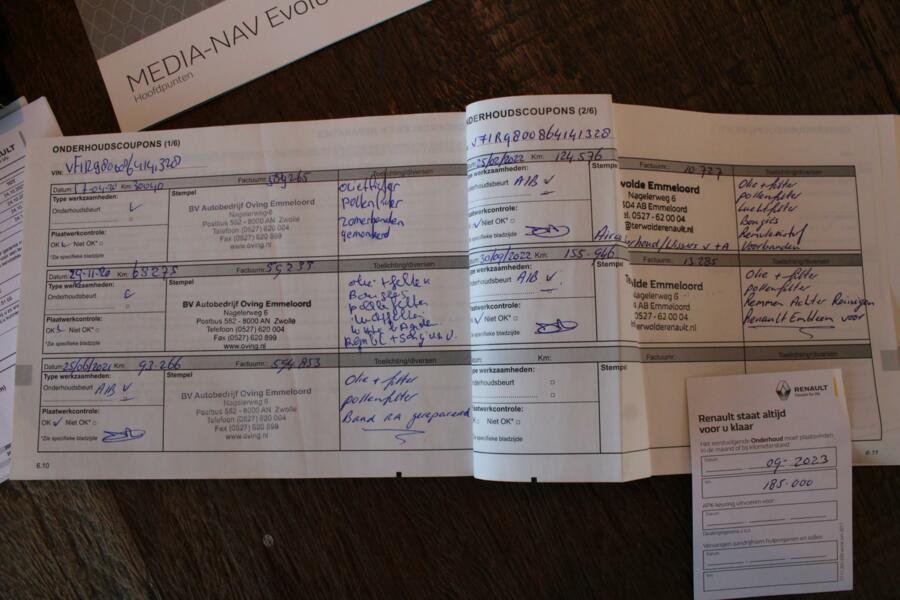 MEDIA-NAV Evolu
Hoofdpunten
ONDERHOUDSCOUPONS (1/6)
VIN: VF1R9800864141328
Datum: 17-04-20 Km: 30040
Factuurnr.: 589265
Toelichting/diversen
Type werkzaamheden:
Onderhoudsbeurt
Plaatwerkcontrole:
OK Niet OK*
*Zie specifieke bladzijde
Stempel
BV Autobedrijf Oving Emmeloord
Nagelerweg 6
Postbus 582 - 8000 AN Zwolle
Telefoon (0527) 620 004
Fax (0527) 620 899
www.oving.nl
oliefilter
pollenfilter
zomerbanden
gemonteerd
Datum: 29-11-20 Km: 63275
Factuurnr.: 59233
Toelichting/diversen
Type werkzaamheden:
Onderhoudsbeurt
Plaatwerkcontrole:
OK Niet OK*
*Zie specifieke bladzijde
Stempel
BV Autobedrijf Oving Emmeloord
Nagelerweg 6
Postbus 582 - 8000 AN Zwolle
Telefoon (0527) 620 004
Fax (0527) 620 899
www.oving.nl
Bougies
Datum: 25/06/2021 Km: 93.266
Factuurnr.: 594853
Toelichting/diversen
Type werkzaamheden:
Onderhoudsbeurt A1B
Plaatwerkcontrole:
OK Niet OK*
*Zie specifieke bladzijde
Stempel
BV Autobedrijf Oving Emmeloord
Nagelerweg 6
Postbus 582 - 8000 AN Zwolle
Telefoon (0527) 620 004
Fax (0527) 620 899
www.oving.nl
Olie + filter
pollenfilter
Band RA gerepareerd
6.10
NDERHOUDSCOUPONS (2/6)
VF1R9800864141328
25/02/2022 Km: 124.576
Factuurnr.: 10.727
Toelichting/diversen
Type werkzaamheden:
Onderhoudsbeurt A1B
Plaatwerkcontrole:
Niet OK*
*Zie specifieke bladzijde
Stempel
wolde Emmeloord
Nagelerweg 6
304 AB Emmeloord
el. 0527 - 62 00 04
@terwolderenault.nl
V+A
Olie + filter
pollenfilter
Luchtfilter
Bougies
Remvloeistof
Voorbanden
30/09/2022 Km: 155-946
Factuurnr.: 13.285
Toelichting/diversen
Type werkzaamheden:
Onderhoudsbeurt A1B
Plaatwerkcontrole:
OK Niet OK*
*Zie specifieke bladzijde
Stempel
lde Emmeloord
Nagelerweg 6
Emmeloord
0527 - 62 00 04
erwolderenault.nl
Olie + filter
pollenfilter
Remmen Achter Reinigen
Renault Embleem voor
Km:
Factuurnr.:
Toelichting/diversen
Type werkzaamheden:
Onderhoudsbeurt
Plaatwerkcontrole:
OK Niet OK*
*Zie specifieke bladzijde
Stempel
6.11
RENAULT
Renault staat altijd
voor u klaar
Het eerstvolgende Onderhoud moet plaatsvinden
in de maand of bij kilometerstand:
Datum
09-2023
km
185.000
APK-keuring uitvoeren voor:
Datum
Vervangen aandrijfriem hulporganen en rollen:
Datum
km